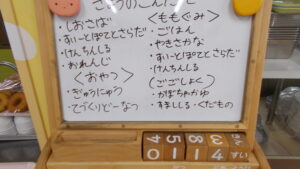 きょうのこんだて
・しおさば
・すいーとぽてとさらだ
・けんちんじる
・おれんじ
<おやつ>
・ぎゅうにゅう
・てづくりどーなつ
<ももぐみ>
・ごはん
・やきざかな
・すいーとぽてとさらだ
・けんちんじる
(ごごしょく)
・かぼちゃがゆ
・すましじる・くだもの